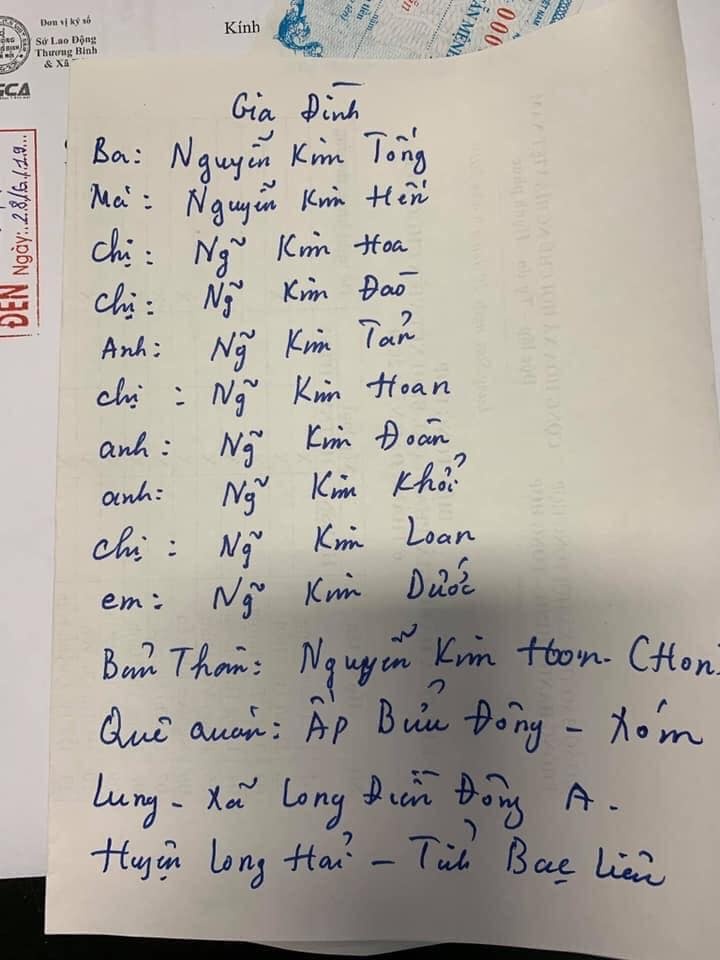 Đơn vị ký số
Sở Lao Động
Thương Binh
& Xã
Kính
000
ĐẾN
Ngày: 28/6/19
Gia Đình
Ba: Nguyễn Kim Tống
Má: Nguyễn Kim Hến
Chị: Ngỡ Kim Hoa
Chị: Ngỡ Kim Đào
Anh: Ngỡ Kim Tấn
chị: Ngỡ Kim Hoan
anh: Ngỡ Kim Đoàn
anh: Ngỡ Kim Khởi
chị: Ngỡ Kim Loan
em: Ngỡ Kim Dước
Bản Thân: Nguyễn Kim Hơn - (Hon
Quê quán: Ấp Bửu Đông - Xóm
Lung - Xã Long Điền Đông A -
Huyện Long Hải - Tỉnh Bạc Liêu